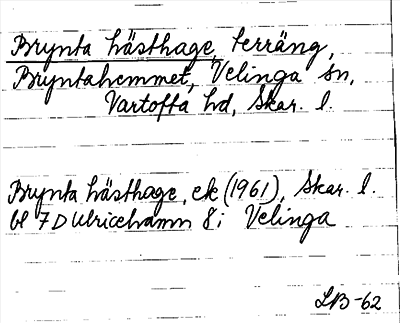 Brynta hästhage, terräng,
Bryntahemmet, Velinga sn,
Vartofta hd, Skar. l.
Brynta hästhage, ek (1961), Skar. l.
bl 7D Ulricehamn 8i Velinga
LB-62